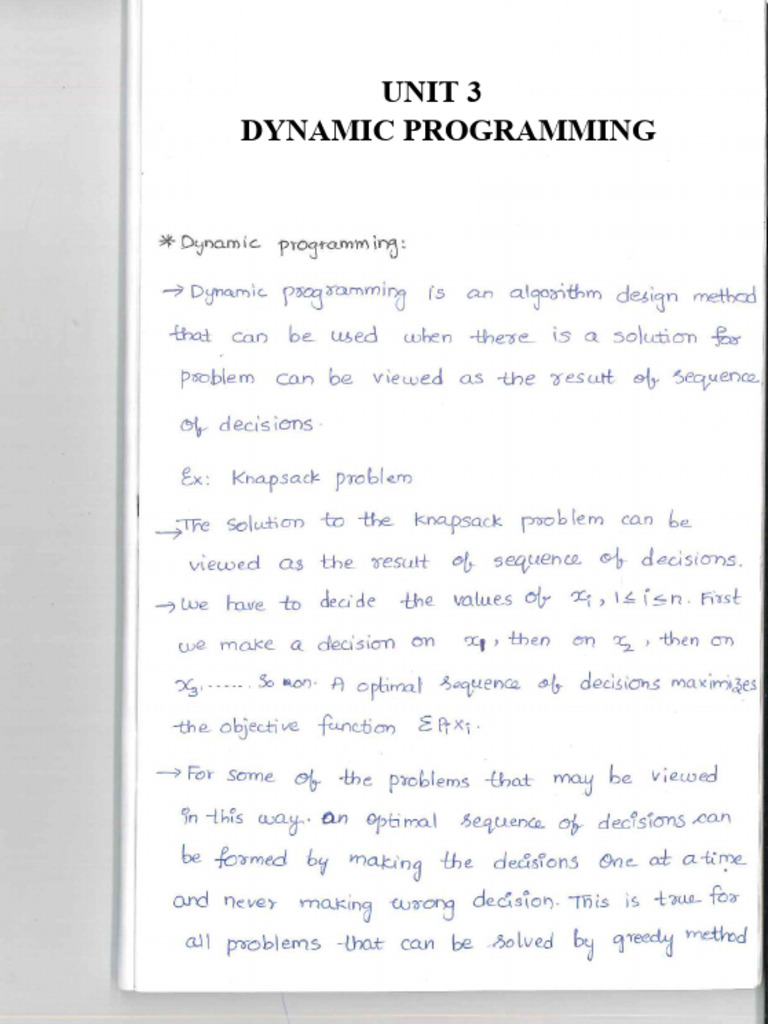 UNIT 3
DYNAMIC PROGRAMMING
* Dynamic programming:
→ Dynamic programming is an algorithm design method
that can be used when there is a solution for
problem can be viewed as the result of sequence
of decisions.
Ex: Knapsack problem
→ The solution to the knapsack problem can be
viewed as the result of sequence of decisions.
→ We have to decide the values of xi, 1≤i≤n. First
we make a decision on x1, then on x2, then on
x3, ...... So on. A optimal sequence of decisions maximizes
the objective function ΣPixi.
→ For some of the problems that may be viewed
in this way. an optimal sequence of decisions can
be formed by making the decisions one at a time
and never making wrong decision. This is true for
all problems that can be solved by greedy method